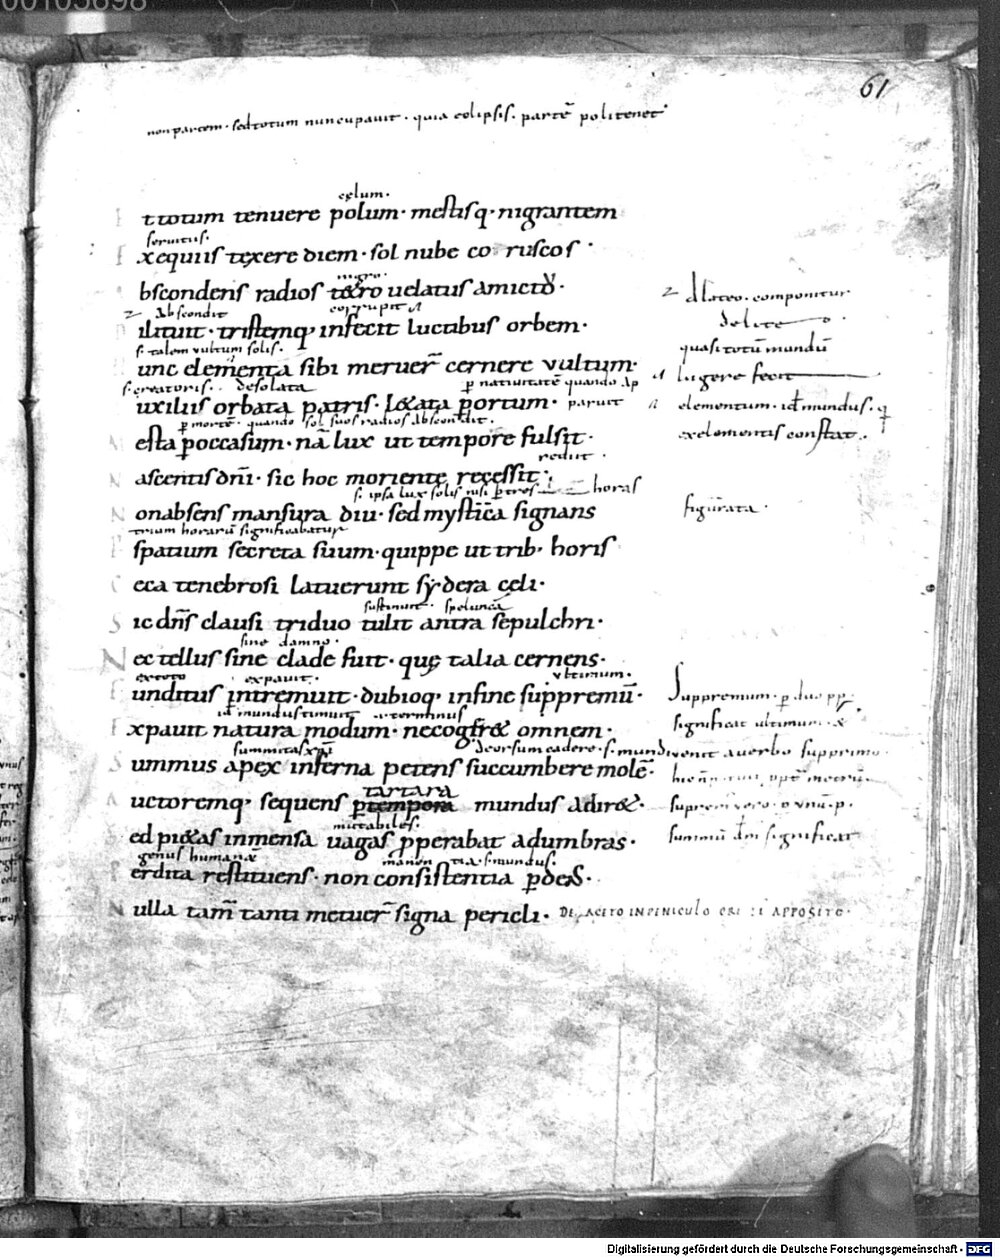 00105698
61
non partem · sed totum nuncupauit · quia eclipsis · partē poli tenet
cęlum ·
t totum tenuere polum · mestisq· nigrantem
seruitiis ·
E xequiis texere diem · sol nube coruscos ·
nigro ·
A bscondens radios tetro uelatus amictu ·
Abscondit corrupit
D ilituit · tristemq; infecit luctibus orbem ·
s · talem vultum solis ·
unc elementa sibi meruer̄ cernere vultum ·
s · creatoris · desolata p̱ natiuitatē quando ap
A uxiliis orbata patris · l&ata p̱ ortum · paruit
p̱ mortē · quando sol suos radios abscondit ·
M esta p̱ occasum · nā lux ut tempore fulsit ·
rediit ·
N ascentis dn̄i · sic hoc moriente recessit ·
s · ipsa lux solis nisi p̱ tres horas
N on absens mansura diu · sed mystica signans
trium horarū significabatur
spatium secreta suum · quippe ut trib· horis
C eca tenebrosi latuerunt sydera celi ·
sustinuit · speluncā
S ic dn̄s clausi triduo tulit antra sepulchri ·
sine damno ·
N ec tellus sine clade fuit · quę talia cernens ·
ex toto expauit · vltimum ·
F unditus intremuit · dubioq; in fine suppremū ·
id mundus timuit terminus
E xpauit natura modum · ne cogeret omnem ·
summitas deorsum cadere · s · mundi
S ummus apex inferna petens succumbere molē ·
tartara
A uctoremq; sequens p̱ tempora mundus adir& ·
mutabiles ·
S ed pi&as inmensa uagas p̱perabat ad umbras ·
genus humanū s · mundus ·
P erdita restituens · non consistentia p̱des ·
N ulla tam̄ tanti metuer̄ signa pericli · DE ACETO IN PENICULO ORI EI APPOSITO ·
A lateo · componitur
delite
quasi totū mundū
lugere fecit
elementum · id mundus · q
ex elementis constat ·
figurata ·
Suppremum · p̱ duo pp ·
significat ultimum · &
venit a uerbo supprimo ·
supremū vero · p̱ vnū · p ·
summū significat
Digitalisierung gefördert durch die Deutsche Forschungsgemeinschaft · DFG